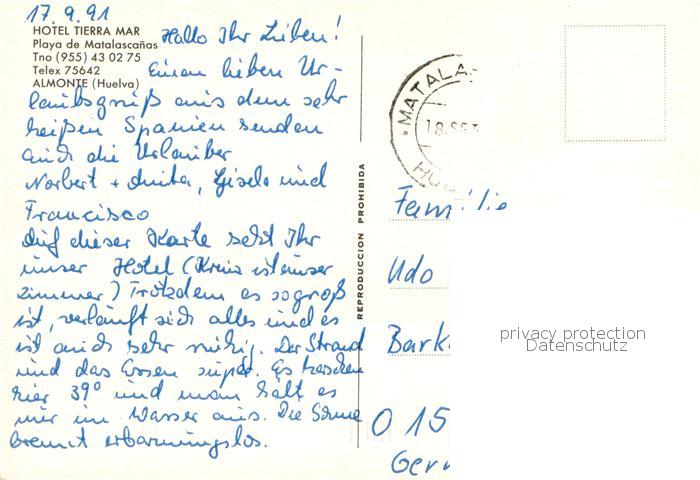 17.9.91
HOTEL TIERRA MAR
Playa de Matalascañas
Tno (955) 43 02 75
Telex 75642
ALMONTE (Huelva)
Hallo Ihr Lieben!
Einen lieben Ur-
laubsgruß aus dem sehr
heißen Spanien senden
auch die Urlauber
Norbert + Anita, Gisela und
Francisco
Auf dieser Karte seht Ihr
unser Hotel (Kreis ist unser
Zimmer) Trotzdem es so groß
ist, verläuft sich alles und es
ist auch sehr ruhig. Der Strand
und das Essen super. Es herschen
hier 39° und man hält es
nur im Wasser aus. Die Sonne
brennt erbarmungslos.
REPRODUCCION PROHIBIDA
MATALA
18 SET
HU
Familie
Udo
Bark
O 15
Ger
privacy protection
Datenschutz